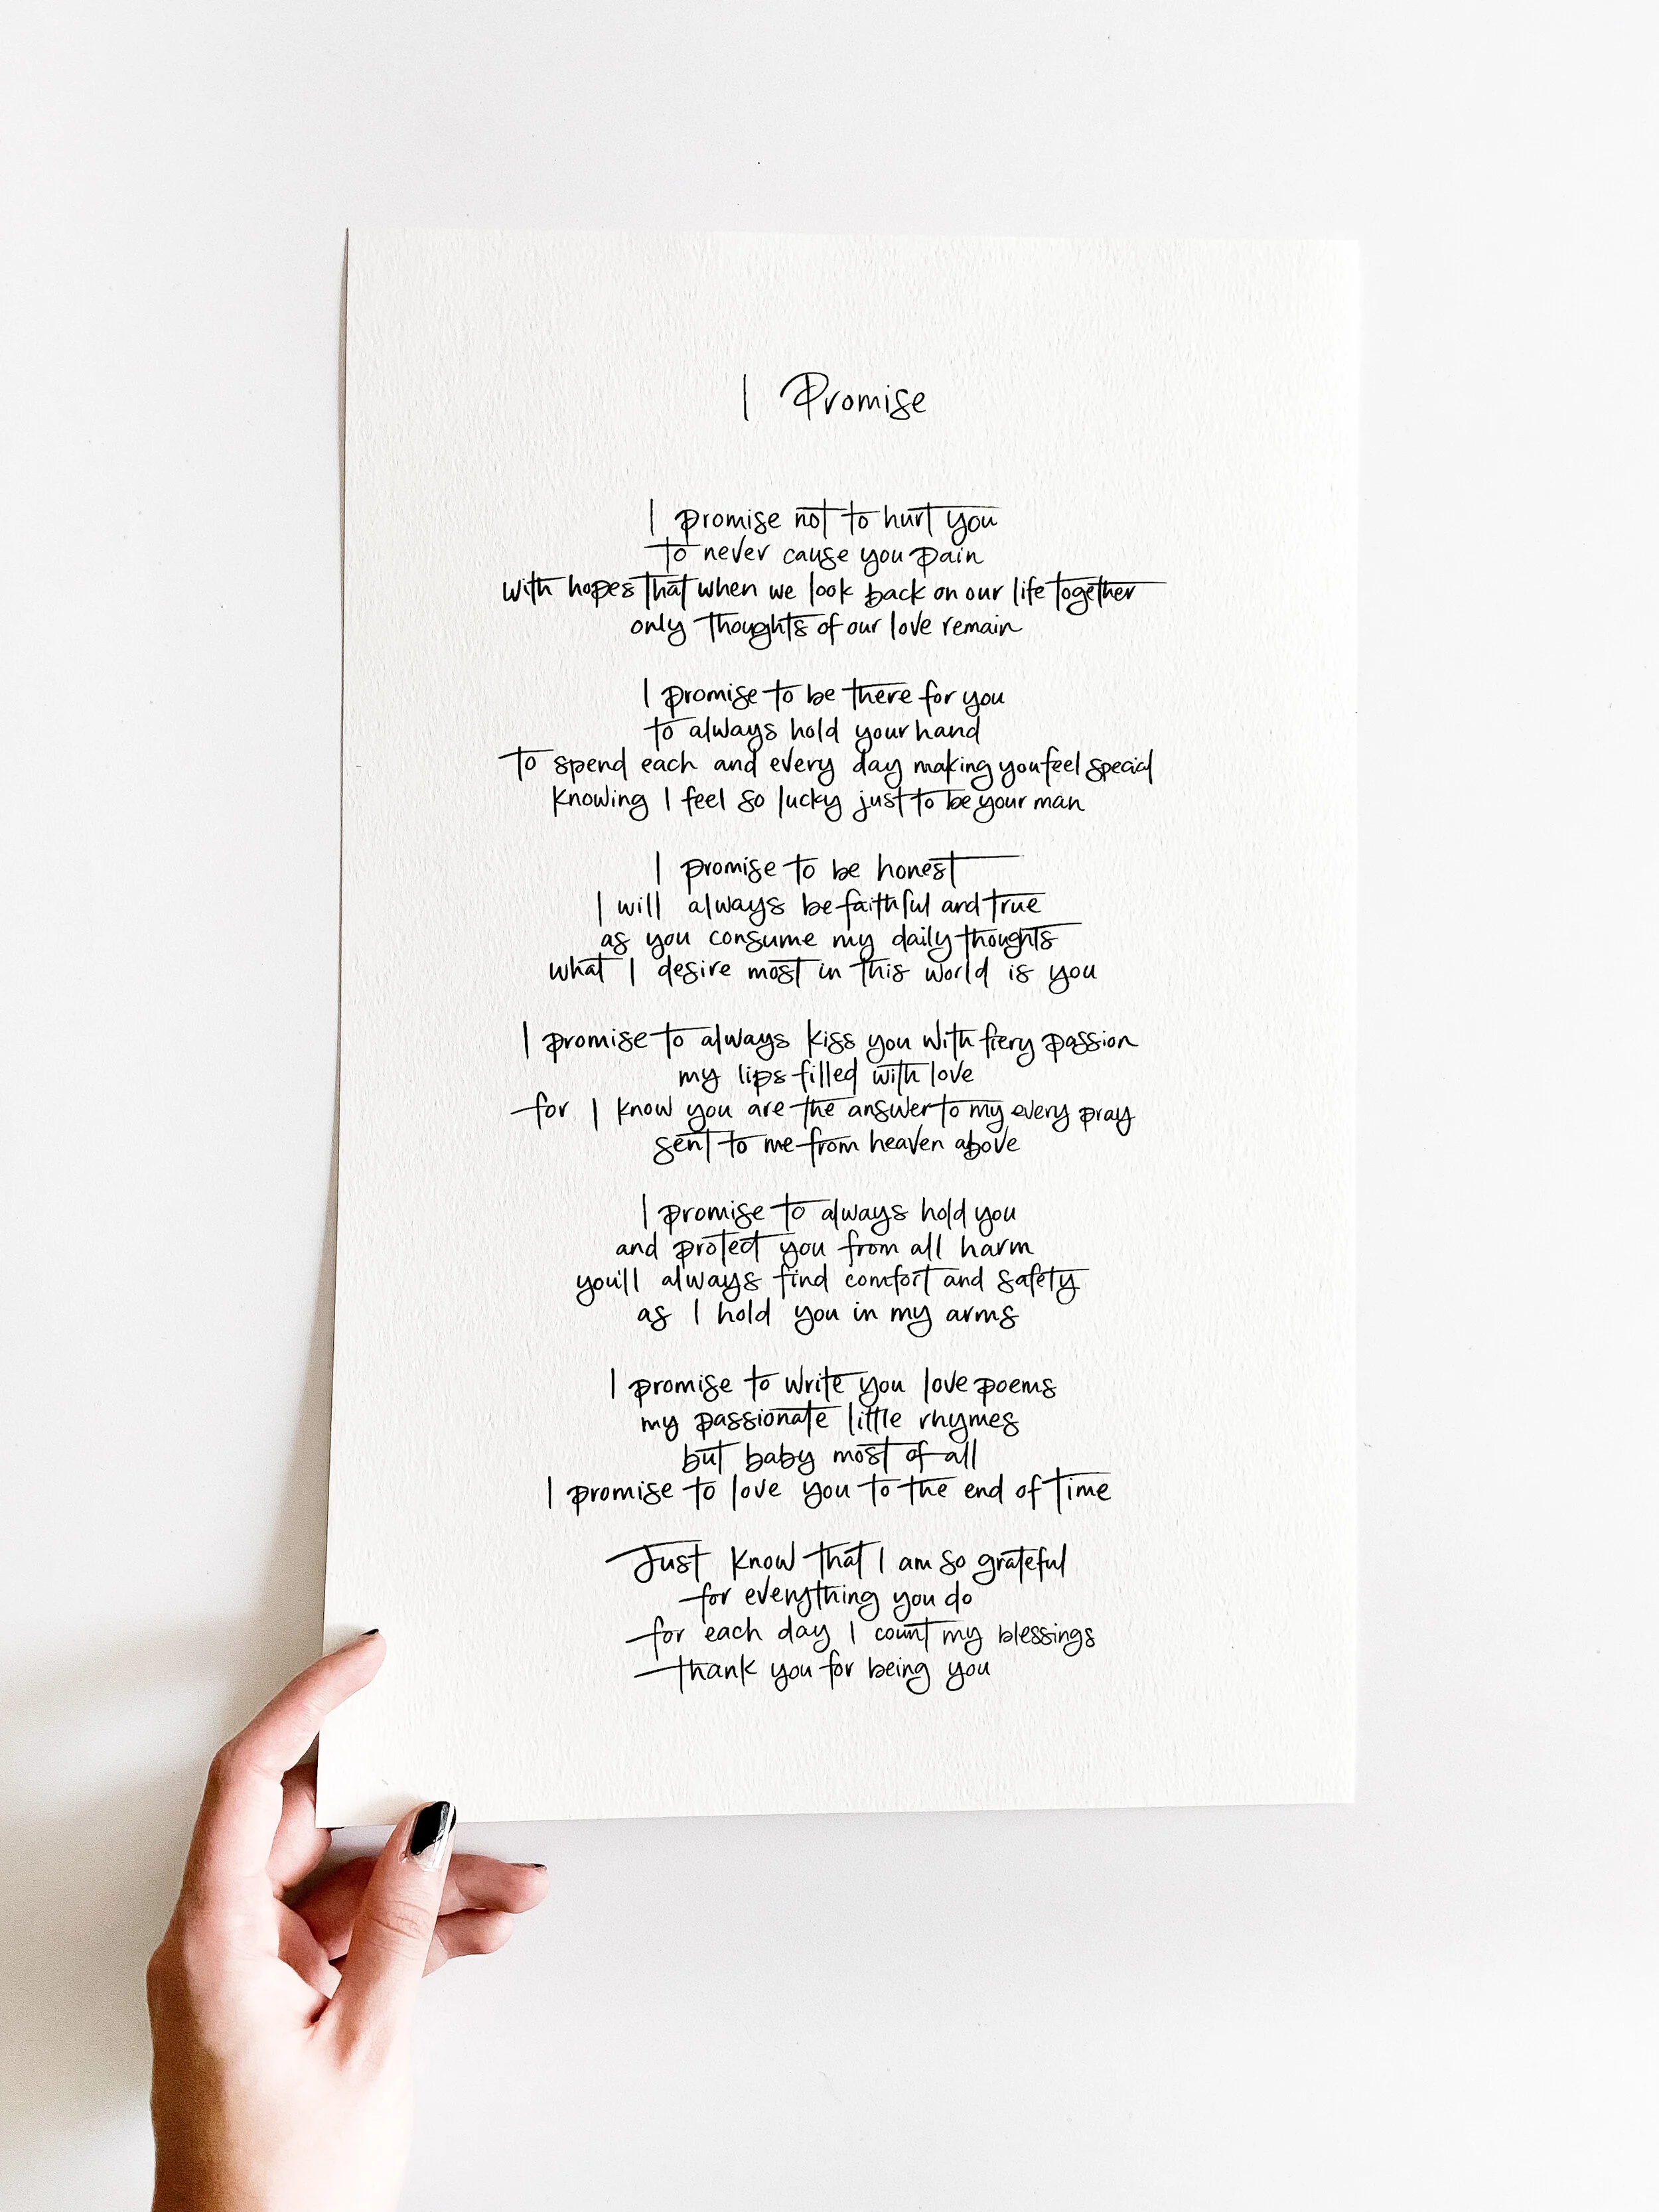 I Promise
I promise not to hurt you
to never cause you pain
with hopes that when we look back on our life together
only thoughts of our love remain
I promise to be there for you
to always hold your hand
to spend each and every day making you feel special
knowing I feel so lucky just to be your man
I promise to be honest
I will always be faithful and true
as you consume my daily thoughts
what I desire most in this world is you
I promise to always kiss you with fiery passion
my lips filled with love
for I know you are the answer to my every pray
sent to me from heaven above
I promise to always hold you
and protect you from all harm
you'll always find comfort and safety
as I hold you in my arms
I promise to write you love poems
my passionate little rhymes
but baby most of all
I promise to love you to the end of time
Just know that I am so grateful
for everything you do
for each day I count my blessings
thank you for being you